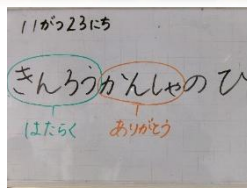 11がつ23にち
きんろうかんしゃのひ
はたらく ありがとう